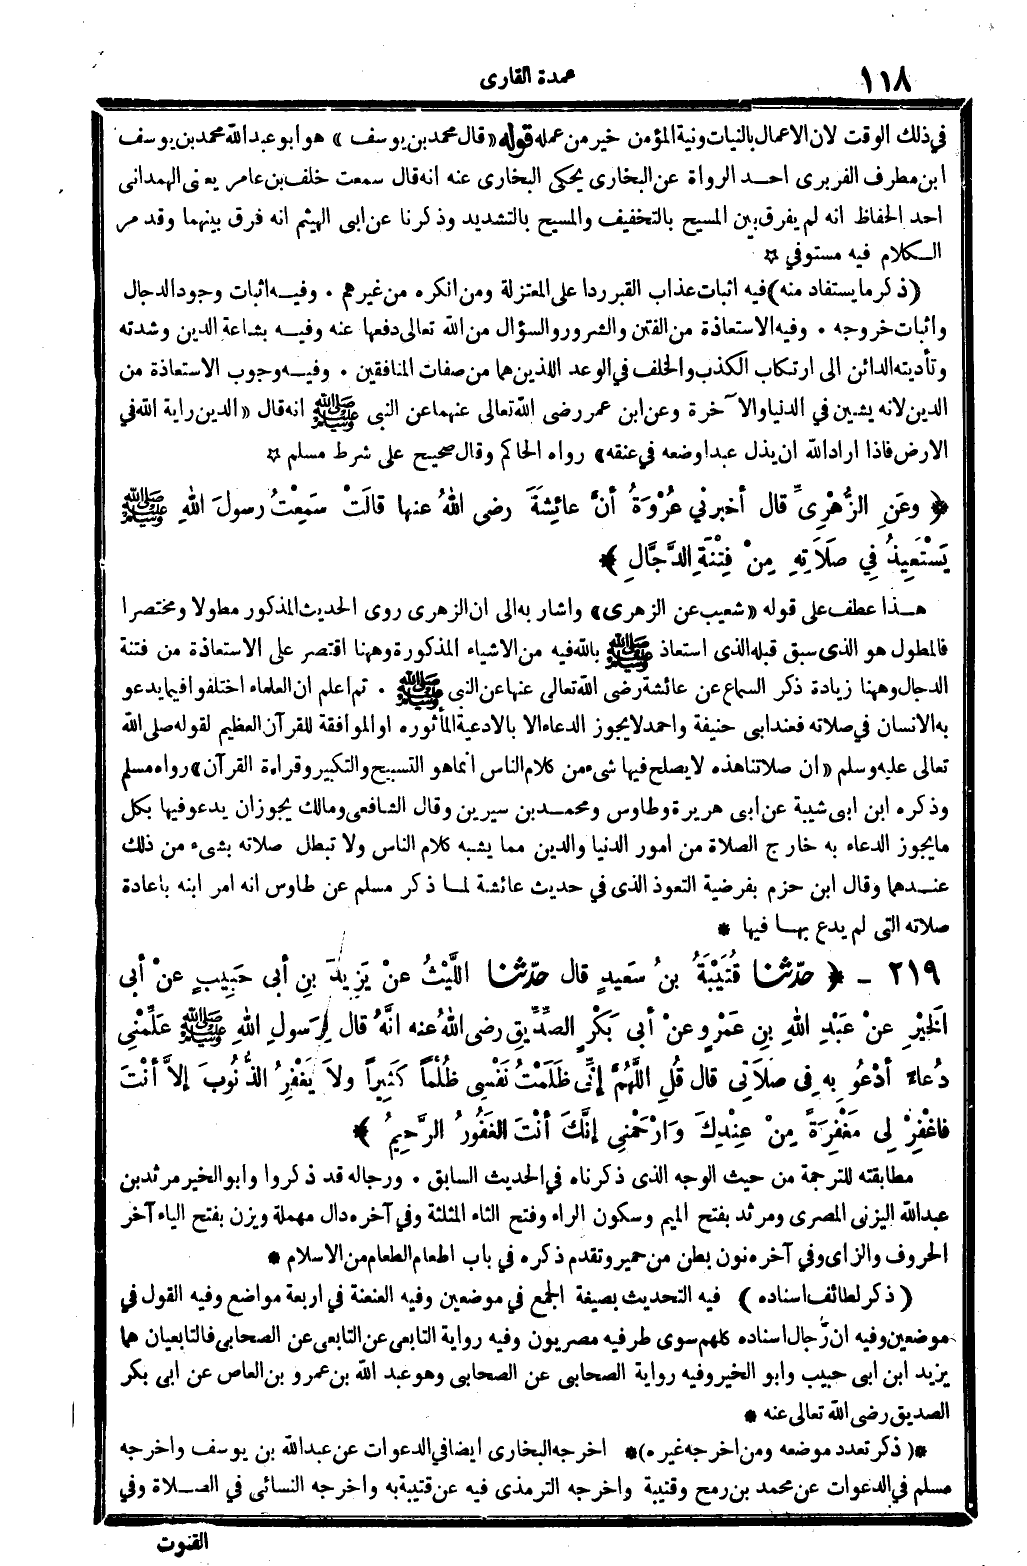 ١١٨
عمدة القارى
في ذلك الوقت لان الاعمال بالنيات ونية المؤمن خير من عمله قوله «قال محمد بن يوسف» هو ابو عبد الله محمد بن يوسف
ابن مطرف الفربرى احد الرواة عن البخارى يحكى البخارى عنه انه قال سمعت خلف بن عامر يعنى الهمدانى
احد الحفاظ انه لم يفرق بين المسيح بالتخفيف والمسيح بالتشديد وذكرنا عن ابى الهيثم انه فرق بينهما وقد مر
الكلام فيه مستوفي ☆
(ذكر ما يستفاد منه) فيه اثبات عذاب القبر ردا على المعتزلة ومن انكره من غيرهم . وفيه اثبات وجود الدجال
واثبات خروجه . وفيه الاستعاذة من الفتن والشرور والسؤال من الله تعالى دفعها عنه وفيه بشاعة الدين وشدته
وتأديته الدائن الى ارتكاب الكذب والخلف في الوعد اللذين هما من صفات المنافقين . وفيه وجوب الاستعاذة من
الدين لانه يشين في الدنيا والآخرة وعن ابن عمر رضى الله تعالى عنهما عن النبى ﷺ انه قال «الدين راية الله في
الارض فاذا اراد الله ان يذل عبدا وضعه في عنقه» رواه الحاكم وقال صحيح على شرط مسلم ☆
﴿ وعَنِ الزُّهْرِىِّ قال أخبرني عُرْوَةُ أنَّ عائِشَةَ رضى اللهُ عنها قالَتْ سَمِعْتُ رسولَ اللهِ ﷺ
يَسْتَعِيذُ فِي صَلَاتِهِ مِنْ فِتْنَةِ الدَّجَّالِ ﴾
هذا عطف على قوله «شعيب عن الزهرى» واشار به الى ان الزهرى روى الحديث المذكور مطولا ومختصرا
فالمطول هو الذى سبق قبله الذى استعاذ ﷺ بالله فيه من الاشياء المذكورة وههنا اقتصر على الاستعاذة من فتنة
الدجال وههنا زيادة ذكر السماع عن عائشة رضى الله تعالى عنها عن النبى ﷺ . ثم اعلم ان العلماء اختلفوا فيما يدعو
به الانسان في صلاته فعند ابى حنيفة واحمد لا يجوز الدعاء الا بالادعية المأثوره او الموافقة للقرآن العظيم لقوله صلى الله
تعالى عليه وسلم «ان صلاتنا هذه لا يصلح فيها شىء من كلام الناس انما هو التسبيح والتكبير وقراءة القرآن» رواه مسلم
وذكره ابن ابى شيبة عن ابى هريرة وطاوس ومحمد بن سيرين وقال الشافعى ومالك يجوز ان يدعو فيها بكل
ما يجوز الدعاء به خارج الصلاة من امور الدنيا والدين مما يشبه كلام الناس ولا تبطل صلاته بشىء من ذلك
عندهما وقال ابن حزم بفرضية التعوذ الذى في حديث عائشة لما ذكر مسلم عن طاوس انه امر ابنه باعادة
صلاته التى لم يدع بها فيها *
٢١٩ - ﴿ حدّثنا قُتَيْبَةُ بنُ سَعِيدٍ قال حدّثنا اللَّيْثُ عنْ يَزِيدَ بنِ أبى حَبِيبٍ عنْ أبى
الخَيْرِ عنْ عَبْدِ اللهِ بنِ عَمْرٍو عنْ أبى بَكْرٍ الصِّدِّيقِ رضى اللهُ عنه انَّهُ قال لِرَسولِ اللهِ ﷺ عَلِّمْنِي
دُعاءً أدْعُو بِهِ فِى صَلَاتِى قال قُلِ اللَّهُمَّ إنِّى ظَلَمْتُ نَفْسِى ظُلْماً كَثِيراً ولاَ يَغْفِرُ الذُّنُوبَ إلاَّ أنْتَ
فاغْفِرْ لِى مَغْفِرَةً مِنْ عِنْدِكَ وَارْحَمْنِى إنَّكَ أنْتَ الغَفُورُ الرَّحِيمُ ﴾
مطابقته للترجمة من حيث الوجه الذى ذكرناه في الحديث السابق . ورجاله قد ذكروا وابو الخير مرثد بن
عبد الله اليزنى المصرى ومرثد بفتح الميم وسكون الراء وفتح الثاء المثلثة وفي آخره دال مهملة ويزن بفتح الياء آخر
الحروف والزاى وفي آخره نون بطن من حمير وتقدم ذكره في باب اطعام الطعام من الاسلام *
(ذكر لطائف اسناده) فيه التحديث بصيغة الجمع في موضعين وفيه العنعنة في اربعة مواضع وفيه القول في
موضعين وفيه ان رجال اسناده كلهم سوى طرفيه مصريون وفيه رواية التابعى عن التابعى عن الصحابى فالتابعيان هما
يزيد ابن ابى حبيب وابو الخير وفيه رواية الصحابى عن الصحابى وهو عبد الله بن عمرو بن العاص عن ابى بكر
الصديق رضى الله تعالى عنه *
*(ذكر تعدد موضعه ومن اخرجه غيره)* اخرجه البخارى ايضا في الدعوات عن عبد الله بن يوسف واخرجه
مسلم في الدعوات عن محمد بن رمح وقتيبة واخرجه الترمذى فيه عن قتيبة به واخرجه النسائى في الصلاة وفي
القنوت